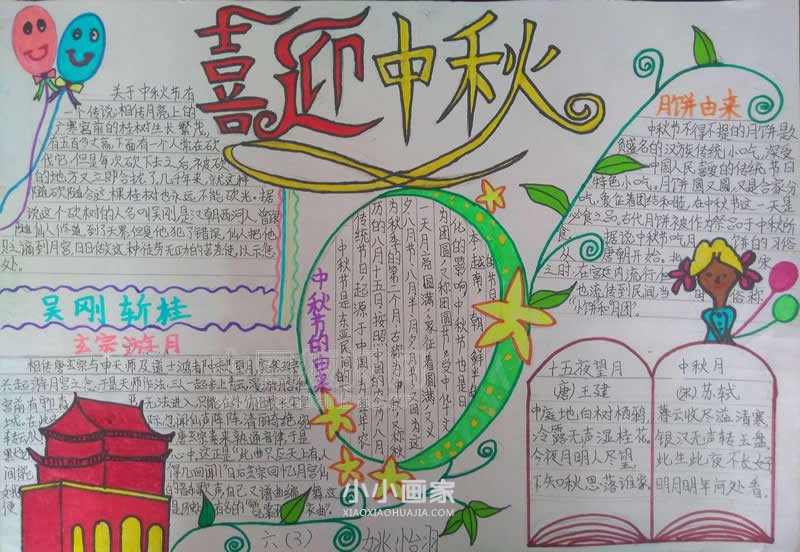 喜迎中秋
关于中秋节有
一个传说:相传月亮上的
广寒宫前的桂树生长繁茂,
有五百多丈高,下面有一个人常在砍
伐它,但是每次砍下去之后,被砍
的地方又立即合拢了,几千年来,就这样
随砍随合,这棵桂树也永远不能砍光。据
说这个砍树的人名叫吴刚,是汉朝西河人,曾跟
随仙人修道,到了天界,但是他犯了错误,仙人把他
贬谪到月宫,日日做这种徒劳无功的苦差使,以示惩
处。
吴刚斩桂
玄宗游月
相传唐玄宗与申天师及道士鸿都中秋望月,突然玄宗
兴起游月宫之念,于是天师作法,三人一起步上青云,漫游月宫。但
宫前有
无法进入,只能在外俯瞰
忽闻仙声阵阵,清丽奇绝,
唐玄宗素来熟通音律,于是
心中,这正是“此曲只应天上有,人
间能得几回闻!”日后玄宗回忆月宫仙
声,自己又谱曲编舞,这
便是历史上有名的“霓裳羽衣曲”。
中秋节的由来
中秋节是东亚民间的
传统节日,起源于中国,为每年农
历的八月十五日,按照中国的农历,八月
为秋季的第二个月,古称为中秋,又称秋
夕、八月节、八月半、月夕、月节,又因为这
一天月亮圆满,象征着圆满,又义
为团圆,又称团圆节。受中华文
化的影响,中秋节也是日
本、越南、朝鲜半岛
的节日
月饼由来
中秋节不得不提的月饼是久
负盛名的汉族传统小吃,深受
中国人民喜爱的传统节日
特色小吃。月饼圆又圆,又是合家分
吃,象征着团结和睦,在中秋节这一天是
必食之品。古代月饼被作为祭品于中秋所
食。据说中秋节吃月饼的习俗
唐朝开始。北宋
之时,在宫廷内流行,
也流传到民间,当时俗称
“小饼”和“月团”。
十五夜望月
(唐)王建
中庭地白树栖鸦,
冷露无声湿桂花。
今夜月明人尽望,
不知秋思落谁家。
中秋月
(宋)苏轼
暮云收尽溢清寒,
银汉无声转玉盘。
此生此夜不长好,
明月明年何处看。
六(3) 姚怡羽
小小画家
XIAOXIAOHUAJIA.COM